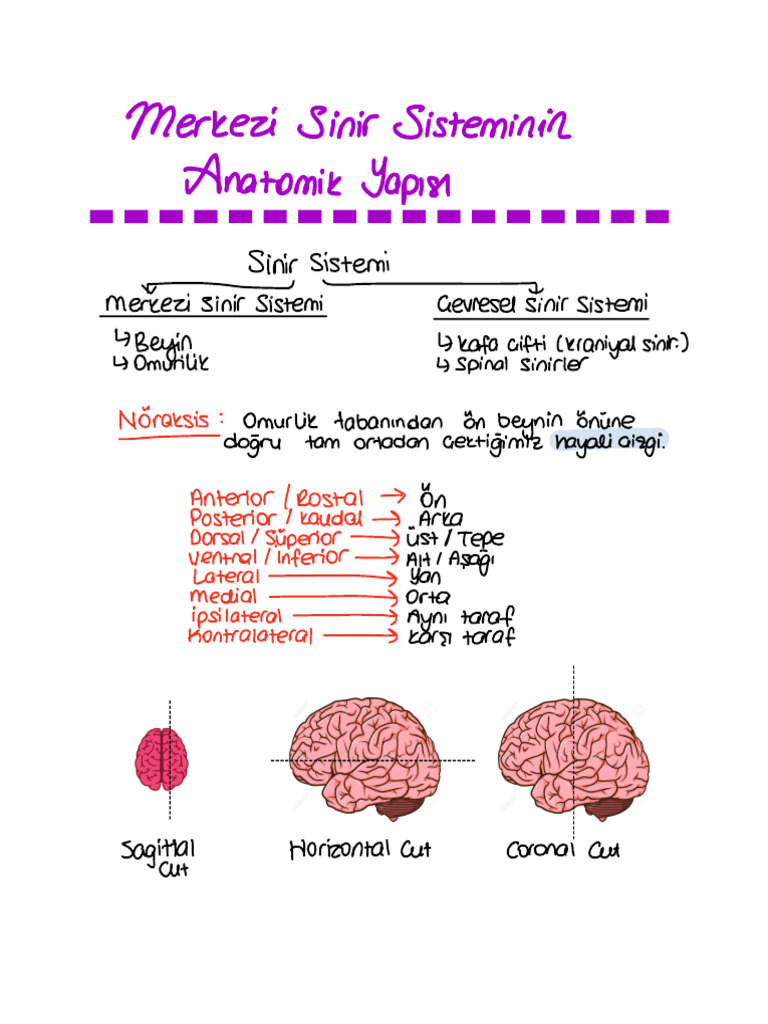 Merkezi Sinir Sisteminin
Anatomik Yapısı
Sinir Sistemi
Merkezi Sinir Sistemi
Çevresel Sinir Sistemi
↳ Beyin
↳ Omurilik
↳ Kafa çifti (kraniyal sinir.)
↳ Spinal sinirler
Nöraksis : Omurlik tabanından ön beynin önüne
doğru tam ortadan çektiğimiz hayali çizgi.
Anterior / Rostal → Ön
Posterior / kaudal → Arka
Dorsal / Süperior → Üst / Tepe
Ventral / İnferior → Alt / Aşağı
Lateral → Yan
Medial → Orta
İpsilateral → Aynı taraf
Kontralateral → Karşı taraf
Sagittal
Cut
Horizontal Cut
Coronal Cut